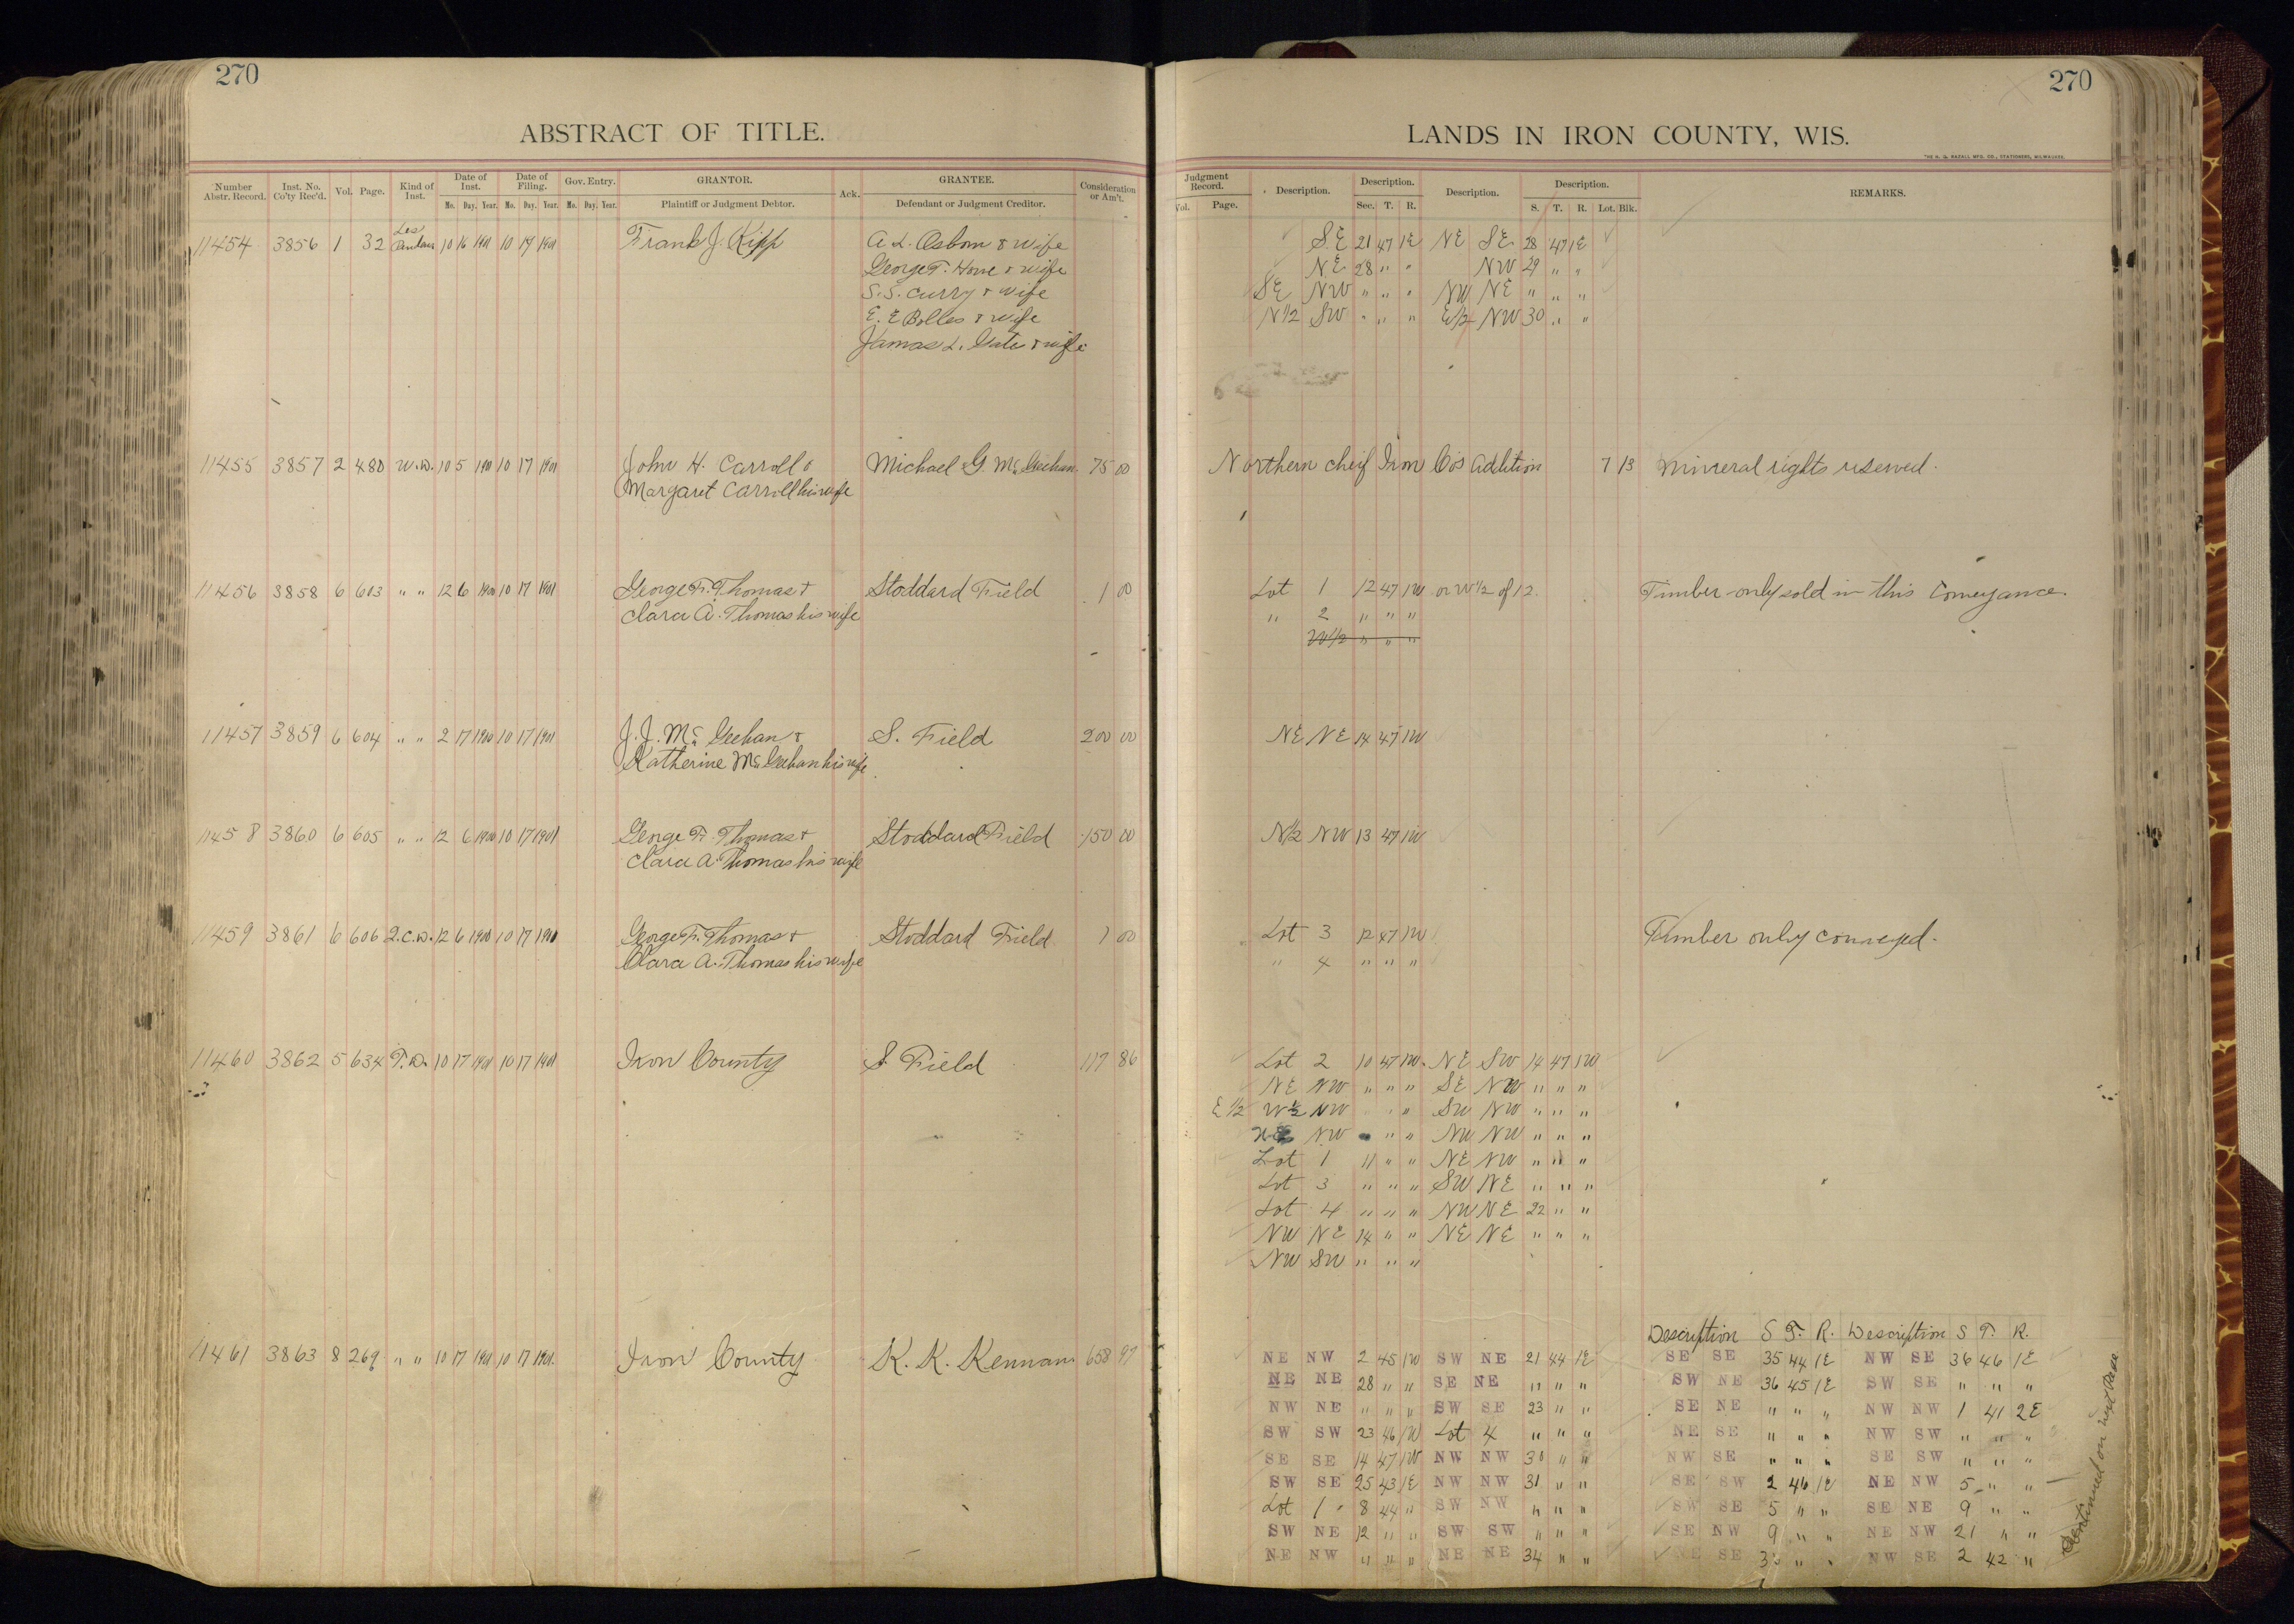 270
ABSTRACT OF TITLE.
Number Abstr. Record. Inst. No. Co'ty Rec'd. Vol. Page. Kind of Inst. Date of Inst. Mo. Day. Year. Date of Filing. Mo. Day. Year. Gov. Entry. Mo. Day. Year. GRANTOR. Plaintiff or Judgment Debtor. Ack. GRANTEE. Defendant or Judgment Creditor. Consideration or Am't.
11454 3856 1 32 10 16 1901 10 17 1901 Frank J. Kipp A. L. Osborn & wife
George T. Howe & wife
S. S. Curry & wife
E. E Bolles & wife
James L. Gates & wife
11455 3857 2 480 W.D. 10 5 1901 10 17 1901 John H. Carroll & Michael G. McGeehan 75 00
Margaret Carroll his wife
11456 3858 6 603 " " 12 6 1900 10 17 1901 George F. Thomas & Stoddard Field 1 00
Clara A. Thomas his wife
11457 3859 6 604 " " 2 17 1900 10 17 1901 J. J. McGeehan & S. Field 200 00
Katherine McGeehan his wife
11458 3860 6 605 " " 12 6 1900 10 17 1901 George F. Thomas & Stoddard Field 150 00
Clara A. Thomas his wife
11459 3861 6 606 Q.C.D. 12 6 1900 10 17 1901 George F. Thomas & Stoddard Field 1 00
Clara A. Thomas his wife
11460 3862 5 634 T.D. 10 17 1901 10 17 1901 Iron County S. Field 117 86
11461 3863 8 269 " " 10 17 1901 10 17 1901 Iron County K. K. Kennan 658 97
270
LANDS IN IRON COUNTY, WIS.
THE H. G. RAZALL MFG. CO., STATIONERS, MILWAUKEE.
Judgment Record. Vol. Page. Description. Description. Sec. T. R. Description. Description. S. T. R. Lot. Blk. REMARKS.
SE 21 47 1E NE SE 28 47 1E
NE 28 " " NW 29 " "
SE NW " " " NW NE " " "
N1/2 SW " " " E1/2 NW 30 " "
Northern cheif Iron Co's Addition 7 13 Mineral rights reserved.
Lot 1 12 47 1W or W1/2 of 12. Timber only sold in this Conveyance.
" 2 " " "
W1/2 " " "
NE NE 14 47 1W
N1/2 NW 13 47 1W
Lot 3 12 47 1W Timber only conveyed.
" 4 " " "
Lot 2 10 47 1W NE SW 14 47 1W
NE NW " " " SE NW " " "
E1/2 W1/2 NW " " SW NW " " "
NW " " NW NW " " "
Lot 1 11 " " NE NW " " "
Lot 3 " " " SW NE " " "
Lot 4 " " " NW NE 22 " "
NW NE 14 " " NE NE " " "
NW SW " " "
Description S T. R. Description S T. R.
NE NW 2 45 1W SW NE 21 44 1E SE SE 35 44 1E NW SE 36 46 1E
NE NE 28 " " SE NE " " " SW NE 36 45 1E SW SE " " "
NW NE " " " SW SE 23 " " SE NE " " " NW NW 1 41 2E
SW SW 23 46 1W Lot 4 " " " NE SE " " " NW SW " " "
SE SE 14 47 1W NW NW 30 " " NW SE " " " SE SW " " "
SW SE 25 43 1E NW NW 31 " " SE SW 2 46 1E NE NW 5 " "
Lot 1 8 44 " SW NW " " " SW SE 5 " " SE NE 9 " "
SW NE 12 " " SW SW " " " SE NW 9 " " NE NW 21 " "
NE NW " " " NE NE 34 " " NE SE " " NW SE 2 42 "
Continued on next Page